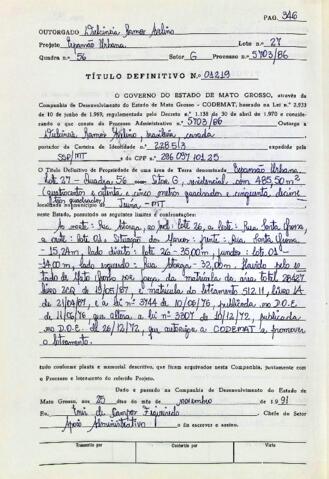 PAG. 346
OUTORGADO Dulcinéia Ramos Avelino
Projeto Expansão Urbana Lote n.º 27
Quadra n.º 56 Setor G Processo n.º 5703/86
TÍTULO DEFINITIVO N.º 01219
O GOVERNO DO ESTADO DE MATO GROSSO, através da
Companhia de Desenvolvimento do Estado de Mato Grosso - CODEMAT, baseado na Lei n.º 2.933
de 10 de junho de 1.969, regulamentado pelo Decreto n.º 1.138 de 30 de abril de 1.970 e considerando
o que consta do Processo Administrativo n.º 5703/86 Outorga a
Dulcinéia Ramos Avelino, brasileira, casada
portador da Carteira de Identidade n.º 228513 expedida pela
SSP/MT e do CPF n.º 286 097 101 25
O Título Definitivo de Propriedade de uma área de Terra denominada Expansão Urbana
Lote 27 - Quadra 56 - Setor G, residencial, com 485,50 m²
(quatrocentos e oitenta e cinco metros quadrados e cinquenta, decíme
tros quadrados)
localizada no município de Juína - MT
neste Estado, possuindo os seguintes limites e confrontações:
Ao norte: Rua ao sul: lote 26, a leste: Rua Ponta Grossa,
a oeste: lote 01. Situação dos Marcos: frente: Rua Ponta Grossa
- 15,24m, lado direito: lote 26 - 35,00m, fundos: lote 01 -
14,00m lado esquerdo: Rua - 32,00m. Havido pelo Es
tado de Mato Grosso por meio da matrícula da área total 28427
livro 2CQ de 19/05/87, e matrícula do loteamento 51211, livro
de 21/09/87, e a lei nº 3744 de 10/06/76, publicada no D.O.E
de 11/06/76, que altera a lei nº 3307 de 18/12/72, publicada
no D.O.E. de 26/12/72, que autoriza a CODEMAT a promover
o loteamento.
tudo conforme planta e memorial descritivo, que ficam arquivados nesta Companhia, juntamente com
o Processo e loteamento do referido Projeto.
Dado e passado na Companhia de Desenvolvimento do Estado de
Mato Grosso, aos 25 dias do mês de novembro de 1991
Eu, de Campos Figueiredo Chefe do Setor
Apoio Administrativo o fiz escrever e assino.
Transcrito por
Conferido por
Visto